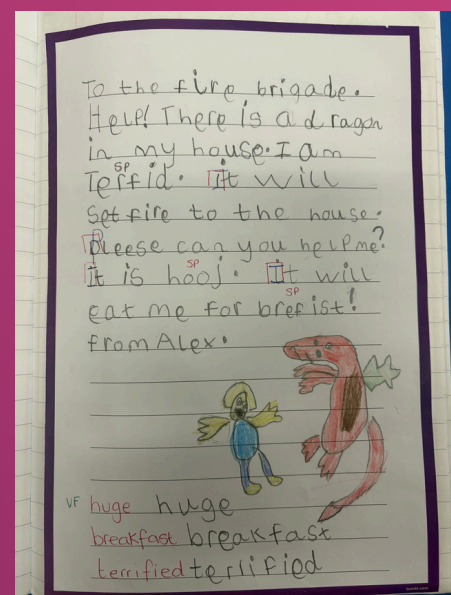 To the fire brigade.
Help! There is a dragon
in my house. I am
SP
Terfid. It will
Set fire to the house.
Pleese can you help me?
SP
It is hooj. It will
SP
eat me for brefist!
from Alex.
VF huge huge
breakfast breakfast
terrified terrified